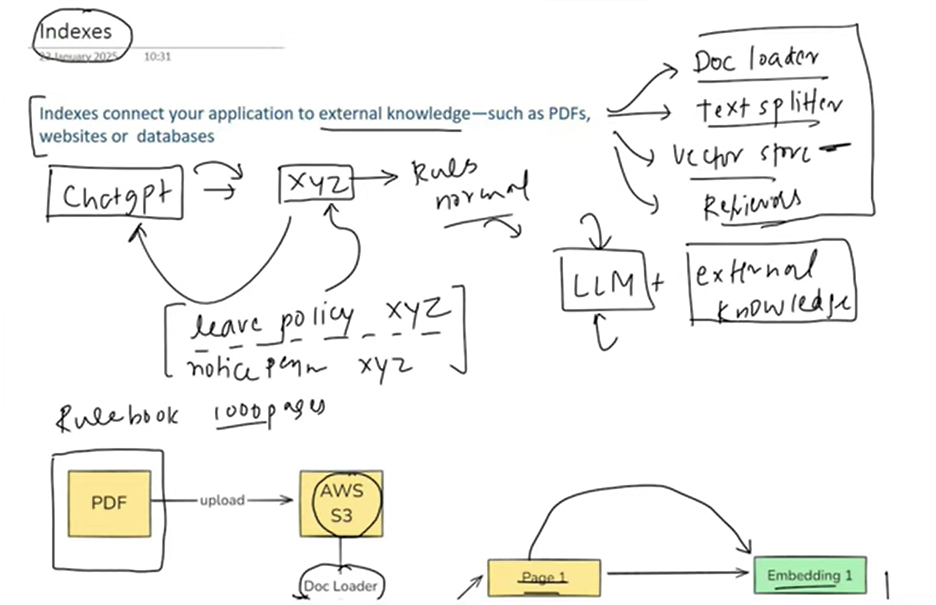 Indexes
22 January 2025 10:31
Indexes connect your application to external knowledge—such as PDFs,
websites or databases
Doc loader
text splitter
vector store
Chatgpt
XYZ
Rules
normal
LLM +
external
knowledge
leave policy XYZ
notice XYZ
Rulebook 1000 pages
PDF
upload
AWS
S3
Doc Loader
Page 1
Embedding 1